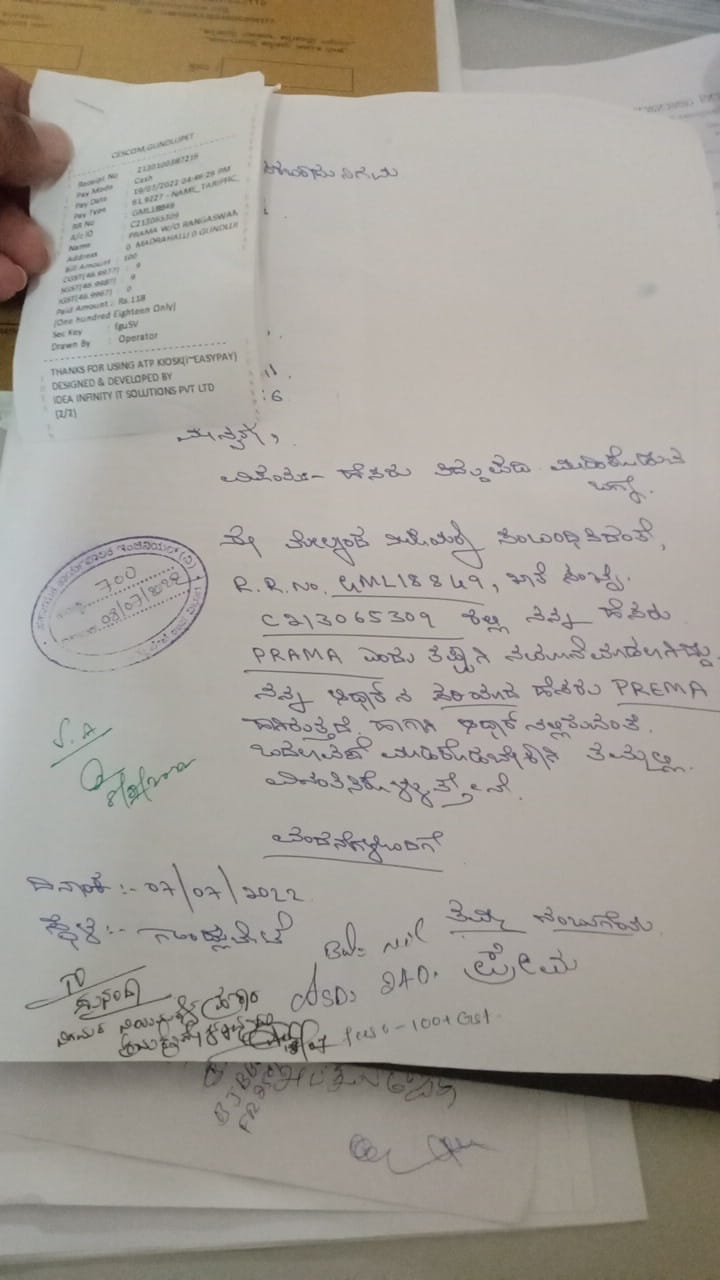 CESCOM,GUNDLUPET
Receipt No : 2130100387216
Pay Mode : Cash
Pay Date : 19/07/2022 04:46:26 PM
Pay Type : 61.9227 - NAME_TARIFFC_
RR No : GML18849
A/c ID : C213065309
Name : PRAMA W/O RANGASWAM
Address : 0 MADRAHALLI 0 GUNDLUP
Bill Amount : 100
CGST : 9
SGST : 9
IGST : 0
Paid Amount : Rs.118
(One hundred Eighteen Only)
Sec Key : fgu5V
Drawn By : Operator
THANKS FOR USING ATP KIOSK(i~EASYPAY)
DESIGNED & DEVELOPED BY
IDEA INFINITY IT SOLUTIONS PVT LTD
(2/2)
ನಿಗಮ
ಮಾನ್ಯರೇ,
ವಿಷಯ:- ಹೆಸರು ತಿದ್ದುಪಡಿ ಮಾಡಿಕೊಡುವ
ಬಗ್ಗೆ.
ಈ ಮೇಲ್ಕಂಡ ವಿಷಯಕ್ಕೆ ಸಂಬಂಧಿಸಿದಂತೆ,
R.R.No. GML18849, ಖಾತೆ ಸಂಖ್ಯೆ
C213065309 ರಲ್ಲಿ ನನ್ನ ಹೆಸರು
PRAMA ಎಂದು ತಪ್ಪಾಗಿ ನಮೂದನೆಮಾಡಲಾಗಿದ್ದು
ನನ್ನ ಆಧಾರ್ ನ ಸರಿಯಾದ ಹೆಸರು PREMA
ಆಗಿರುತ್ತದೆ. ಹಾಗಾಗಿ ಆಧಾರ್ ನಲ್ಲಿರುವಂತೆ
ಬದಲಾವಣೆ ಮಾಡಿಕೊಡಬೇಕಾಗಿ ತಮ್ಮಲ್ಲಿ
ವಿನಂತಿಸಿಕೊಳ್ಳುತ್ತೇನೆ.
ವಂದನೆಗಳೊಂದಿಗೆ
700
08/07/2022
S.A
ದಿನಾಂಕ :- 07/07/2022
ಸ್ಥಳ :- ಗುಂಡ್ಲುಪೇಟೆ
ತಮ್ಮ ನಂಬುಗೆಯ
ಪ್ರೇಮ
Bal: Nil
ASD: 240.
TO
100+GST